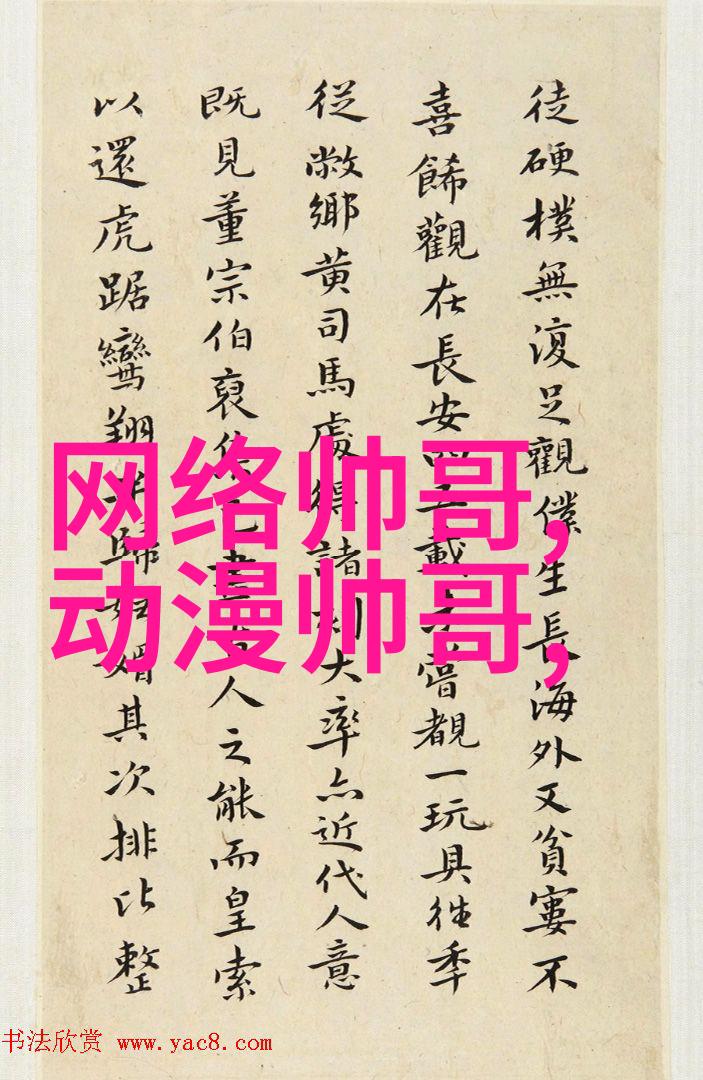 徒硬樸無復足觀僕生長海外又貧窶不
喜餙觀在長安四五載嘗覩一玩具往季
從敝鄉黄司馬處得諸刻大率亦近代人意
既見董宗伯裒人之能而皇索
以還虎踞鸞翔歸其次排比整
网络帅哥,
动漫帅哥,
书法欣赏 www.yac8.com